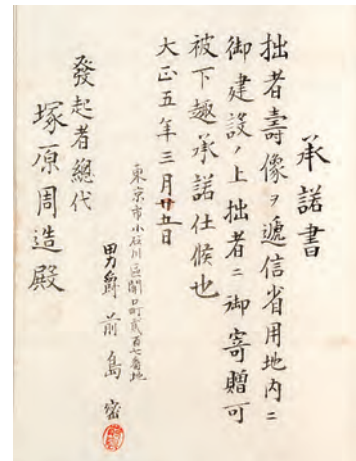 承諾書
拙者壽像ヲ遞信省用地内ニ
御建設ノ上拙者ニ御寄贈可
被下趣承諾仕候也
大正五年三月廿五日
東京市小石川區関口町貮百七番地
男爵 前島密
發起者總代
塚原周造殿